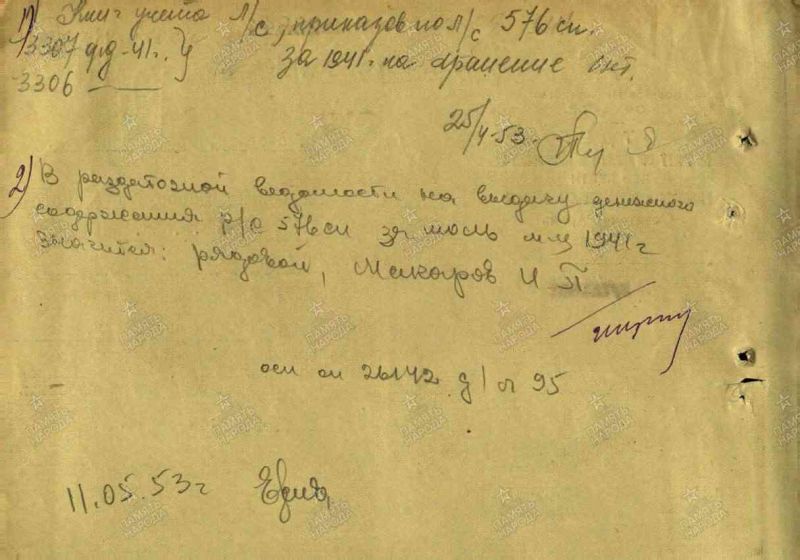 1) Книг учета л/с, приказов по л/с 576 сп.
3307 д.д-41г.
3306
за 1941г. на хранение нет.
25/4-53г.
2) В раздаточной ведомости на выдачу денежного
содержания р/с 576 сп за июль м-ц 1941г
значится: рядовой, Макаров И П
оп 26142 д 1 л 95
11.05.53г